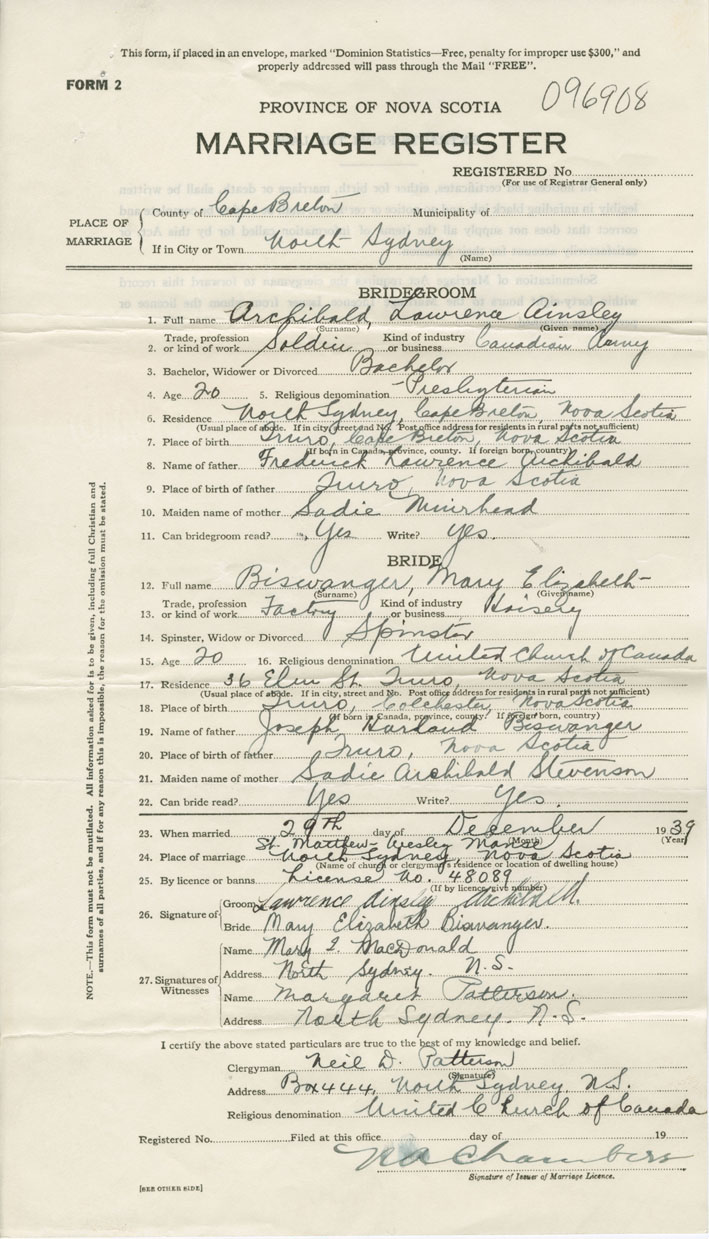 This form, if placed in an envelope, marked "Dominion Statistics—Free, penalty for improper use $300," and
properly addressed will pass through the Mail "FREE".
FORM 2
096908
PROVINCE OF NOVA SCOTIA
MARRIAGE REGISTER
REGISTERED No.
(For use of Registrar General only)
PLACE OF MARRIAGE
County of Cape Breton Municipality of
If in City or Town North Sydney
(Name)
BRIDEGROOM
1. Full name Archibald, Lawrence Ainsley
(Surname) (Given name)
2. Trade, profession or kind of work Soldier Kind of industry or business Canadian Army
3. Bachelor, Widower or Divorced Bachelor
4. Age 20 5. Religious denomination Presbyterian
6. Residence North Sydney, Cape Breton, Nova Scotia
(Usual place of abode. If in city, street and No. Post office address for residents in rural parts not sufficient)
7. Place of birth Truro, Cape Breton, Nova Scotia
(If born in Canada, province, county. If foreign born, country)
8. Name of father Frederick Lawrence Archibald
9. Place of birth of father Truro, Nova Scotia
10. Maiden name of mother Sadie Muirhead
11. Can bridegroom read? Yes Write? Yes.
BRIDE
12. Full name Biswanger, Mary Elizabeth
(Surname) (Given name)
13. Trade, profession or kind of work Factory Kind of industry or business Hoisery
14. Spinster, Widow or Divorced Spinster
15. Age 20 16. Religious denomination United Church of Canada
17. Residence 36 Elm St. Truro, Nova Scotia
(Usual place of abode. If in city, street and No. Post office address for residents in rural parts not sufficient)
18. Place of birth Truro, Colchester, Nova Scotia
(If born in Canada, province, county. If foreign born, country)
19. Name of father Joseph Harland Biswanger
20. Place of birth of father Truro, Nova Scotia
21. Maiden name of mother Sadie Archibald Stevenson
22. Can bride read? Yes Write? Yes.
23. When married 29th day of December 1939
(Month) (Year)
St. Matthew-Wesley Manse
24. Place of marriage North Sydney, Nova Scotia
(Name of church or clergyman's residence or location of dwelling house)
25. By licence or banns License No. 48089
(If by licence, give number)
26. Signature of
Groom Lawrence Ainsley Archibald.
Bride Mary Elizabeth Biswanger.
27. Signatures of Witnesses
Name Mary MacDonald
Address North Sydney. N.S.
Name Margaret Patterson.
Address North Sydney. N.S.
I certify the above stated particulars are true to the best of my knowledge and belief.
Clergyman Neil D. Patterson
(Signature)
Address Box 444, North Sydney N.S.
Religious denomination United Church of Canada
Registered No. Filed at this office day of 19
Chambers
Signature of Issuer of Marriage Licence.
[SEE OTHER SIDE]
NOTE.—This form must not be mutilated. All information asked for is to be given, including full Christian and
surnames of all parties, and if for any reason this is impossible, the reason for the omission must be stated.